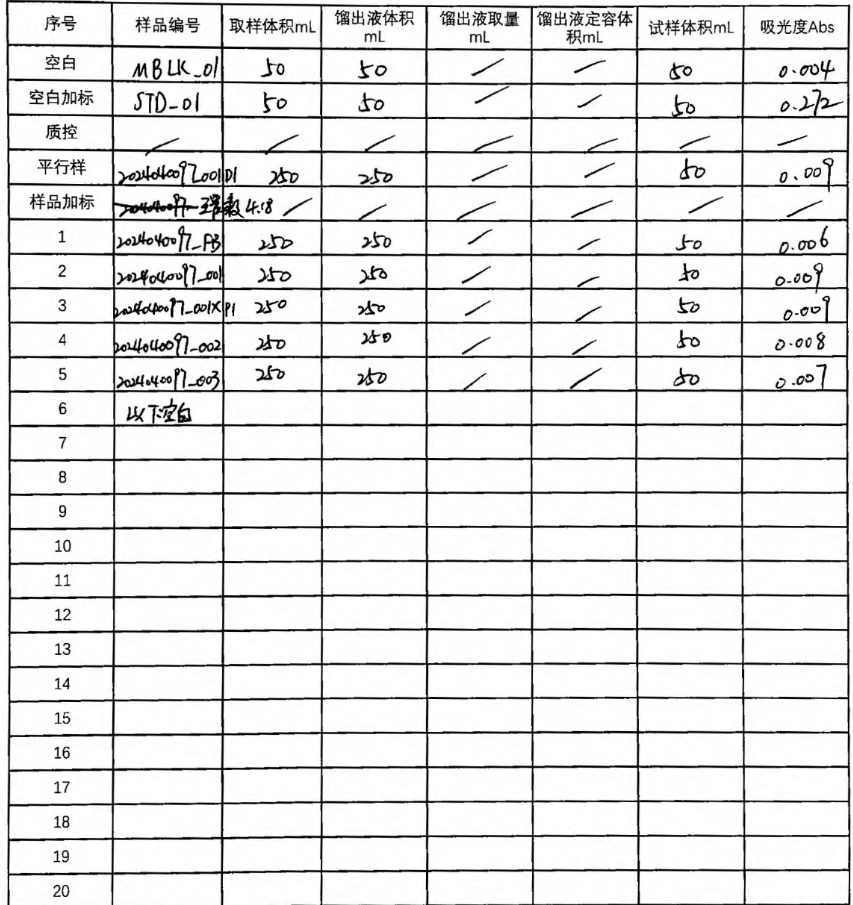 序号 样品编号 取样体积mL 馏出液体积mL 馏出液取量mL 馏出液定容体积mL 试样体积mL 吸光度Abs
空白 MBLK_01 50 50 / / 50 0.004
空白加标 STD-01 50 50 / / 50 0.272
质控 / / / / / / /
平行样 2024040097_001D1 250 250 / / 50 0.009
样品加标 4.18 / / / / / /
1 2024040097_FB 250 250 / / 50 0.006
2 2024040097_001 250 250 / / 50 0.009
3 2024040097_001XP1 250 250 / / 50 0.009
4 2024040097_002 250 250 / / 50 0.008
5 2024040097_003 250 250 / / 50 0.007
6 以下空白
7
8
9
10
11
12
13
14
15
16
17
18
19
20